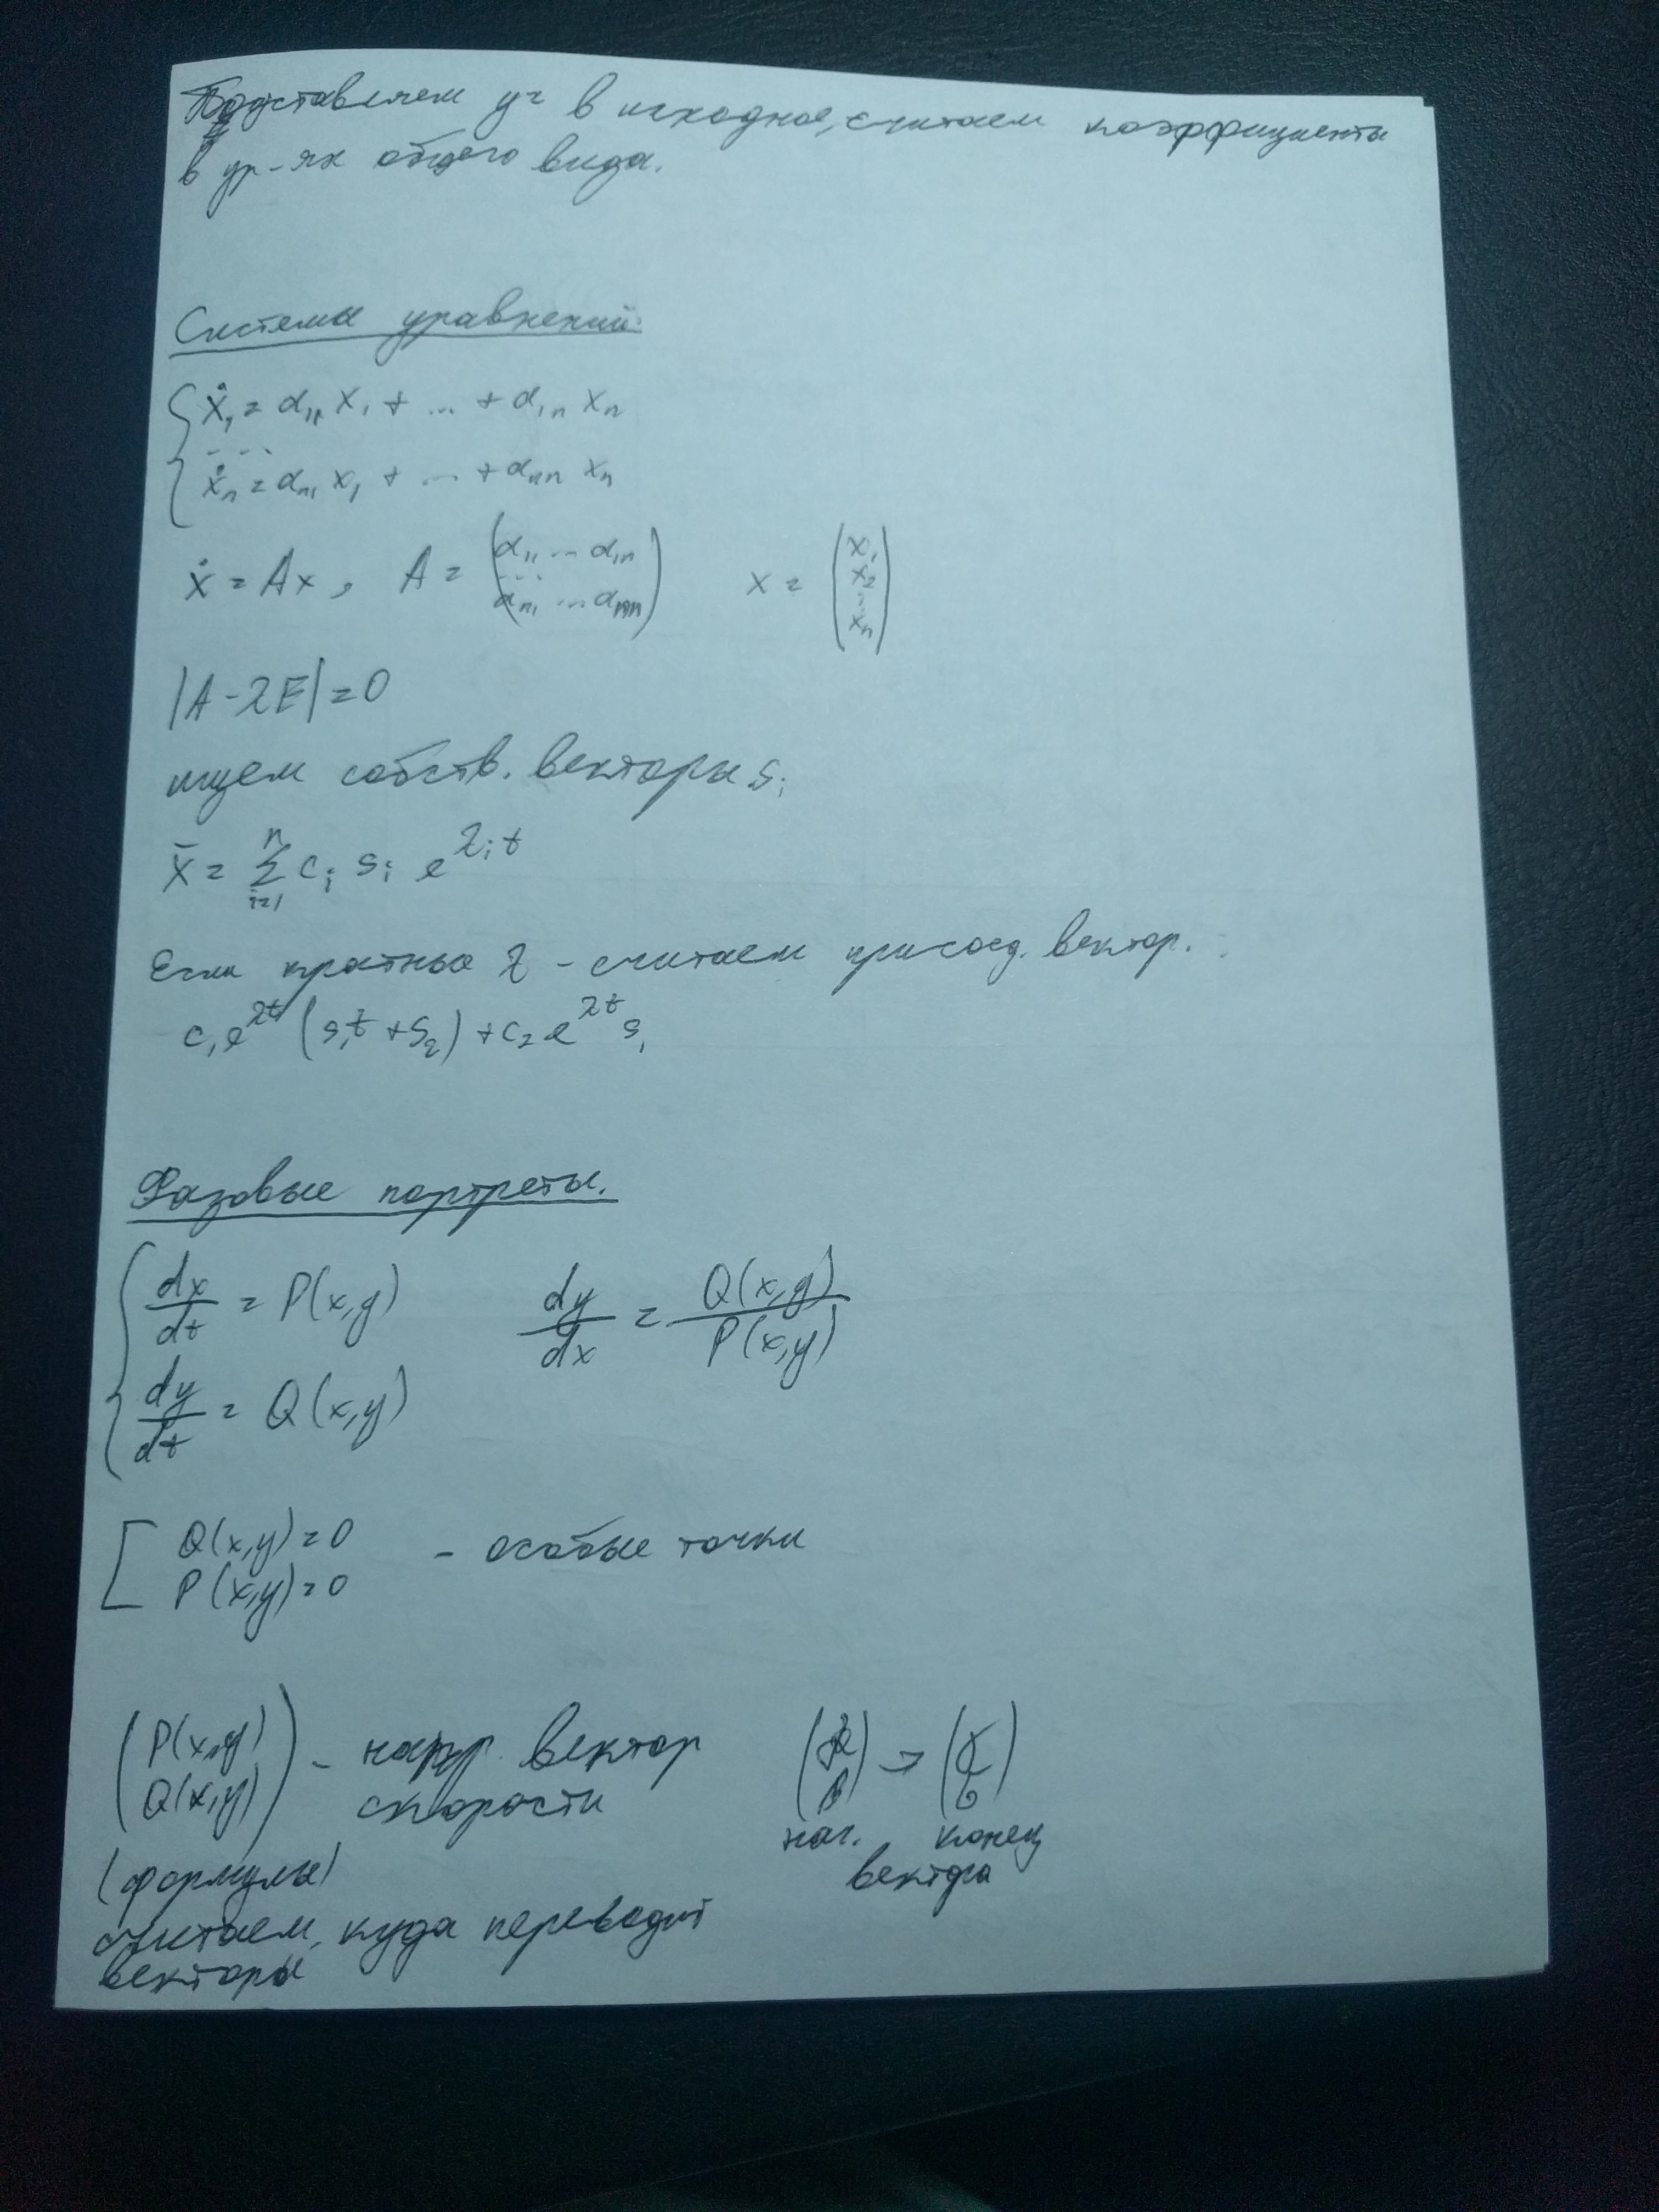 Подставляем yч в исходное, считаем коэффициенты
в ур-ях общего вида.
Системы уравнений.
{ ẋ₁ = α₁₁ x₁ + ... + α₁ₙ xₙ
...
ẋₙ = αₙ₁ x₁ + ... + αₙₙ xₙ
ẋ = Ax, A = (α₁₁ ... α₁ₙ ... αₙ₁ ... αₙₙ) x = (x₁ x₂ ⋮ xₙ)
|A - λE| = 0
ищем собств. векторы sᵢ
x̄ = Σᵢ₌₁ⁿ cᵢ sᵢ e^(λᵢt)
Если кратные λ - считаем присоед. вектор.
c₁e^(λt) (s₁t + s₂) + c₂e^(λt) s₁
Фазовые портреты.
{ dx/dt = P(x,y) dy/dx = Q(x,y)/P(x,y)
dy/dt = Q(x,y)
[ Q(x,y) = 0 - особые точки
P(x,y) = 0
(P(x,y) Q(x,y)) - напр. вектор
скорости
нач. конец
вектора
(формулы)
считаем, куда переводит
векторы